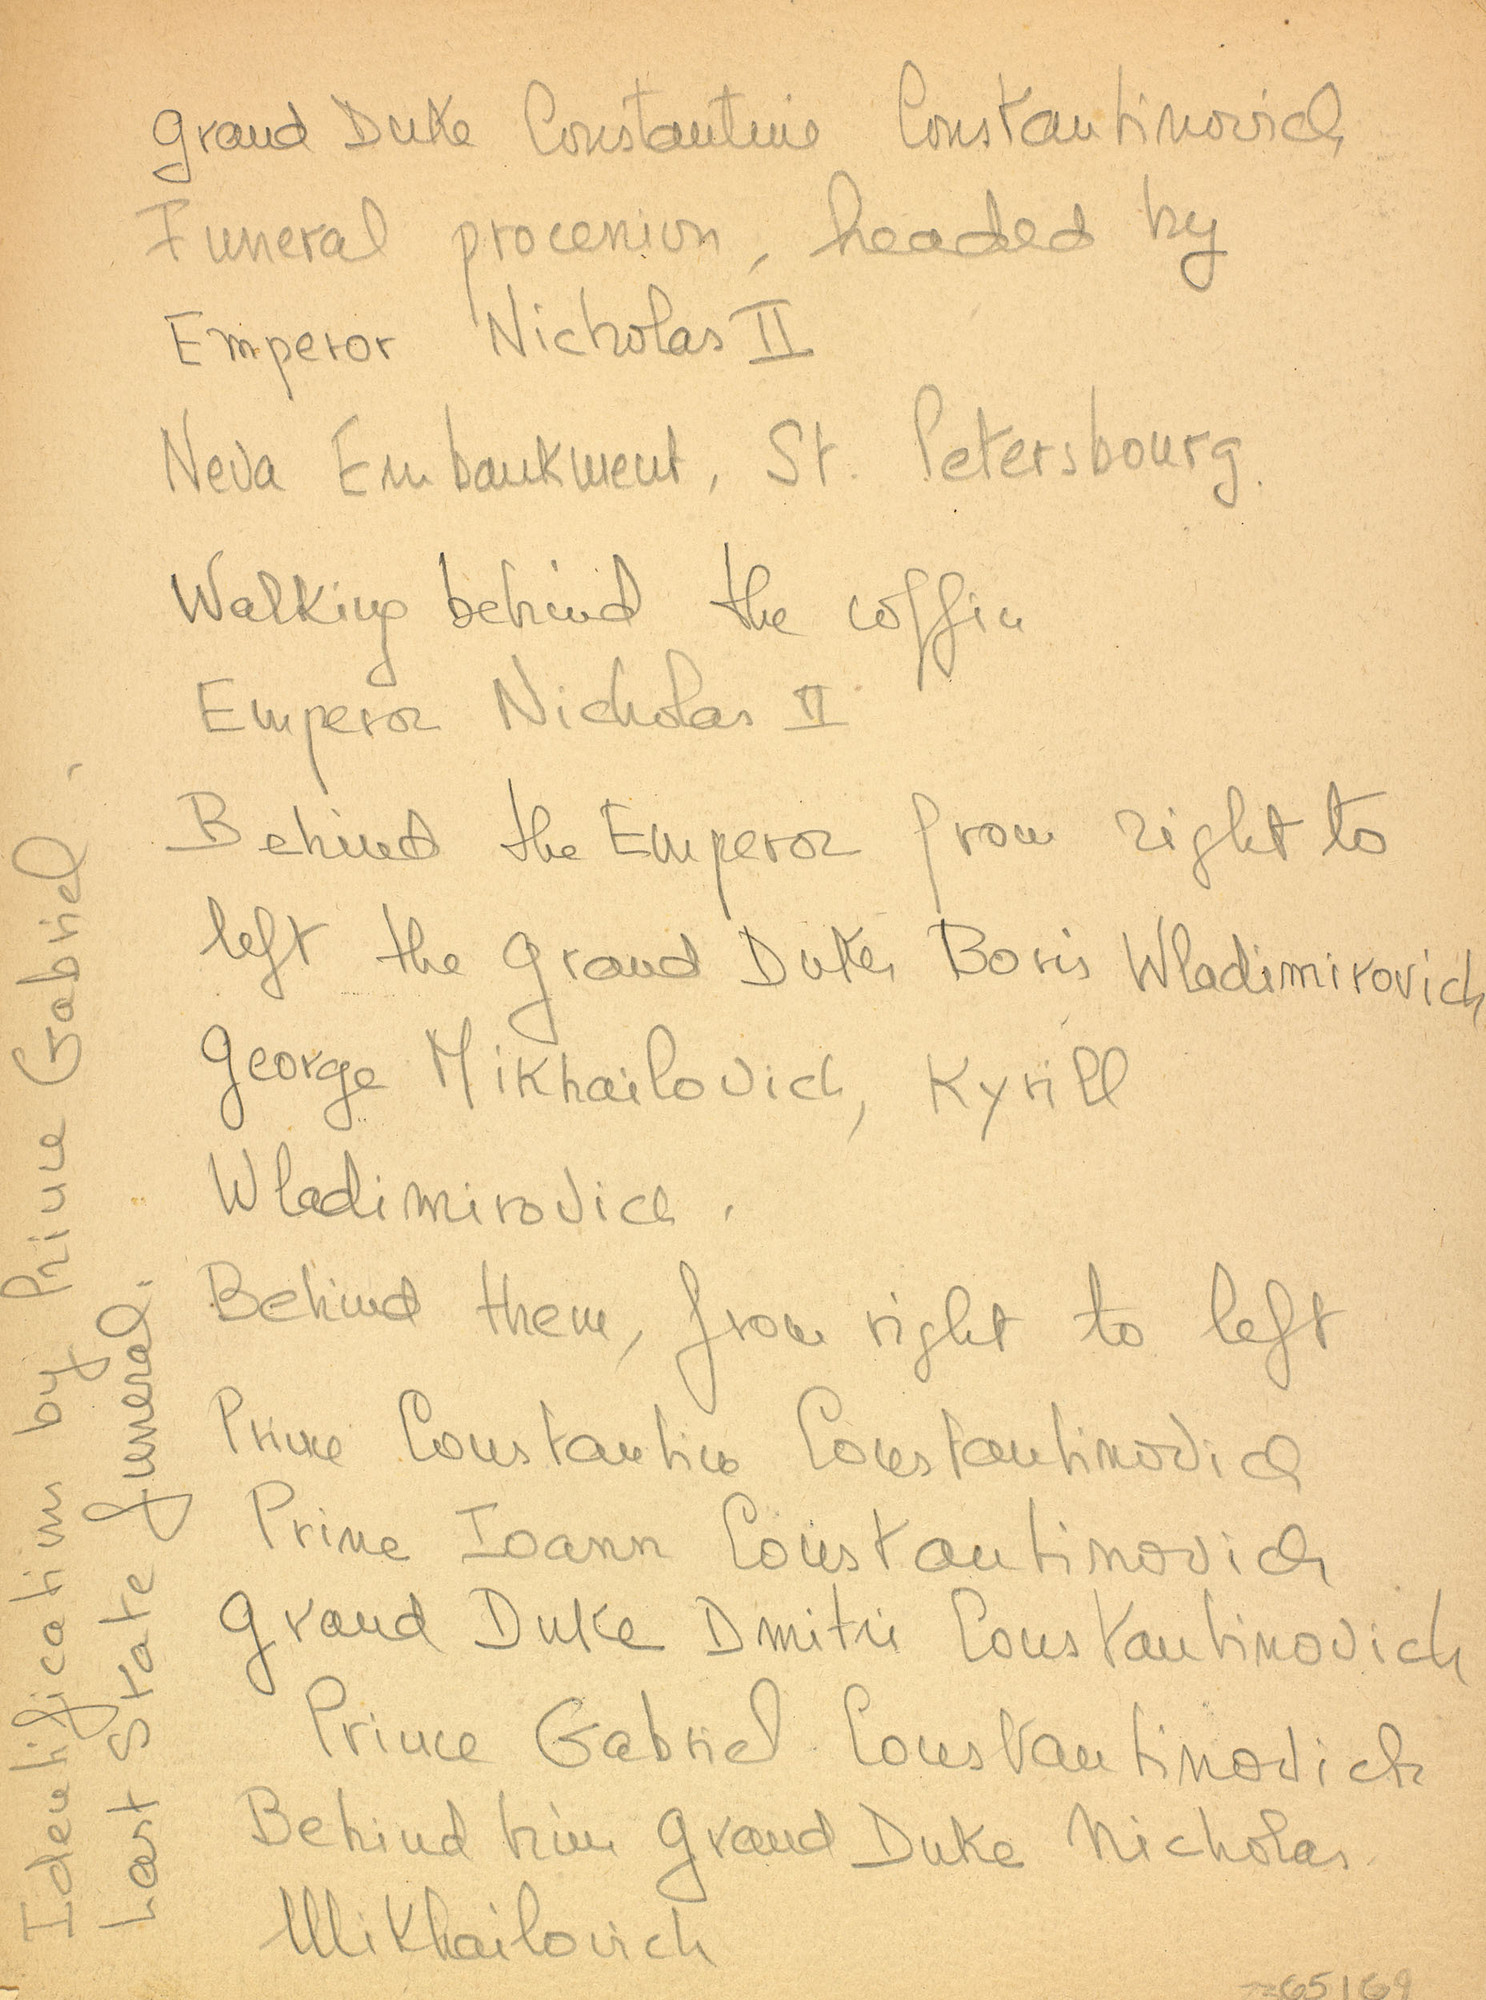 Grand Duke Constantine Constantinovich
Funeral procession, headed by
Emperor Nicholas II
Neva Embankment, St. Petersbourg.
Walking behind the coffin
Emperor Nicholas II
Behind the Emperor from right to
left the Grand Dukes Boris Wladimirovich
George Mikhailovich, Kyrill
Wladimirovich.
Behind them, from right to left
Prince Constantin Constantinovich
Prince Ioann Constantinovich
Grand Duke Dmitri Constantinovich
Prince Gabriel Constantinovich
Behind him Grand Duke Nicholas
Mikhailovich
Identification by Prince Gabriel.
Last State funeral.
65169